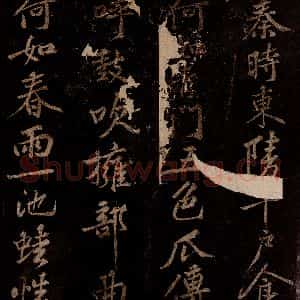 秦時東陵千戶食
何門五色瓜傳
呼鼓吹擁部曲
何如春雨池蛙性
Shufawang.cn